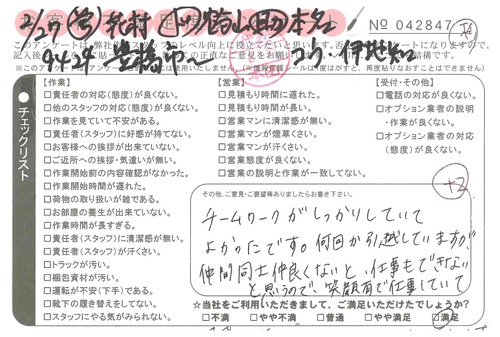 2/27
NO 042847
このアンケートは、弊社
9424
コウ・伊地知
チェックリスト
【作業】
□責任者の対応(態度)が良くない。
□他のスタッフの対応(態度)が良くない。
□作業を見ていて不安がある。
□責任者(スタッフ)に好感が持てない。
□お客様への挨拶が出来ていない。
□ご近所への挨拶・気遣いが無い。
□作業開始前の内容確認がなかった。
□作業開始時間が遅れた。
□荷物の取り扱いが雑である。
□お部屋の養生が出来ていない。
□作業時間が長すぎる。
□責任者(スタッフ)に清潔感が無い。
□責任者(スタッフ)が汗くさい。
□トラックが汚い。
□梱包資材が汚い。
□運転が不安(下手)である。
□靴下の履き替えをしてない。
□スタッフにやる気がみられない。
【営業】
□見積もり時間に遅れた。
□見積もり時間が長い。
□営業マンに清潔感が無い。
□営業マンが煙草くさい。
□営業マンが汗くさい。
□営業態度が良くない。
□営業の説明と作業が一致してない。
【受付・その他】
□電話の対応が良くない。
□オプション業者の説明
・作業が良くない。
□オプション業者の対応
(態度)が良くない。
+2
その他、ご意見・ご要望等ありましたらお書き下さい。
チームワークがしっかりしていて
よかったです。何回か引越していますが、
仲間同士仲良くないと、仕事もできない
と思うので、笑顔有で仕事していて
☆当社をご利用いただきまして、ご満足いただけたでしょうか?
□不満 □やや不満 □普通 □やや満足 □満足